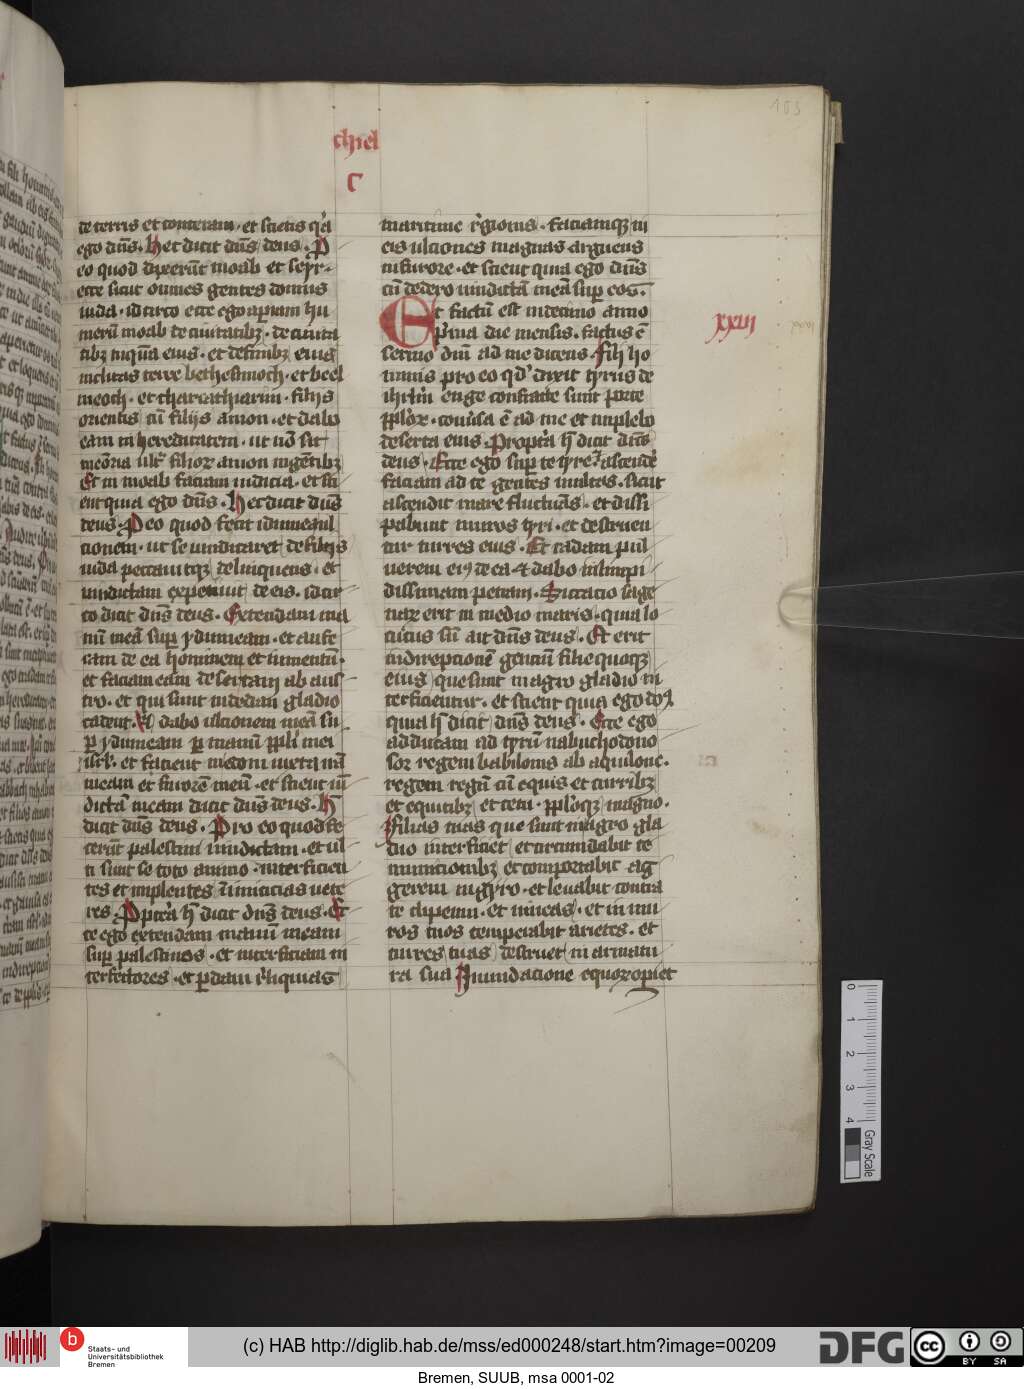 chiel
C
163
de terris et conteram · et scietis q̇a
ego dn̄s. Hec dicit dn̄s deus. P
eo quod dixerūt moab et seyr·
ecce sicut om̄es gentes domus
iuda · idcirco ecce ego aperiam hu
merū moab de ciuitatibꝫ · de ciuita
tibꝫ inquā eius · et de finibꝫ eius
inclitas terre bethesimoth · et beel
meon · et chariathiarim · filijs
orientis cū filijs amon · et dabo
eam in hereditatem · ut nō sit
memoria ult̄ filioꝝ amon in gentibꝫ
Et in moab faciam iudicia · et sci
ent quia ego dn̄s. Hec dicit dn̄s
deus. P eo quod fecit idumea ul
tionem · ut se uindicaret de filijs
iuda peccauitqꝫ delinquens · et
uindictam expetiuit de eis. idcir
co dicit dn̄s deus. Extendam ma
nū meā sup ydumeam · et aufe
ram de ea hominem et iumentū·
et faciam eam desertam ab aus
tro. et qui sunt in dedan gladio
cadent. Et dabo ultionem meā su
p̱ ydumeam p̱ manū ppli mei
isrl̄. et facient in edom iuxta irā
meam et furorē meū · et scient uin
dictā meam dicit dn̄s deus. Hec
dicit dn̄s deus. Pro eo quod fe
cerūt palestini uindictam · et ul
ti sunt se toto animo · interficien
tes et implentes inimicitias uete
res. Ppterea h̄ dicit dn̄s deus. Ec
ce ego extendam manū meam
sup palestinos · et interficiam in
terfectores · et p̱dam reliquias
maritime regionis · faciamqꝫ in
eis ultiones magnas arguens
in furore · et scient quia ego dn̄s
cū dedero uindictā meā sup eos.
Et factū est in decimo anno
p̄ma die mensis. factus ē
sermo dn̄i ad me dicens. fili ho
minis pro eo qd̓ dixit tyrus de
ihrlm̄ euge confracte sunt porte
pploꝝ · conuersa ē ad me et implebor
deserta eius. Propterea h̄ dicit dn̄s
deus · Ecce ego sup te tyre ⁊ ascendere
faciam ad te gentes multas. sicut
ascendit mare fluctuās · et dissi
pabunt muros tyri · et destruen
tur turres eius. Et radam pul
uerem eiꝰ de ea ⁊ dabo in limpi
dissimam petram. Siccacio sage
naꝝ erit in medio maris · quia lo
cutus sū ait dn̄s deus. Et erit
in direptionē gentiū filie quoqꝫ
eius que sunt in agro gladio in
terficientur · et scient quia ego dn̄s
quia h̄ dicit dn̄s deus · Ecce ego
adducam ad tyrū nabuchodono
sor regem babilonis ab aquilone.
regem regū cū equis et curribꝫ
et equitibꝫ et cetu · pploqꝫ magno.
filias tuas que sunt in agro gla
dio interficiet et circumdabit te
munitionibꝫ et comportabit ag
gerem in gyro · et leuabit contra
te clipeum · et uineas · et in mu
ros tuos temperabit arietes · et
turres tuas destruet in armatu
ra sua Inundacione equoꝝ opiet
xxvi
xxvi
0 1 2 3 4
Gray Scale
b
Staats- und
Universitätsbibliothek
Bremen
(c) HAB http://diglib.hab.de/mss/ed000248/start.htm?image=00209
DFG
cc
BY SA
Bremen, SUUB, msa 0001-02